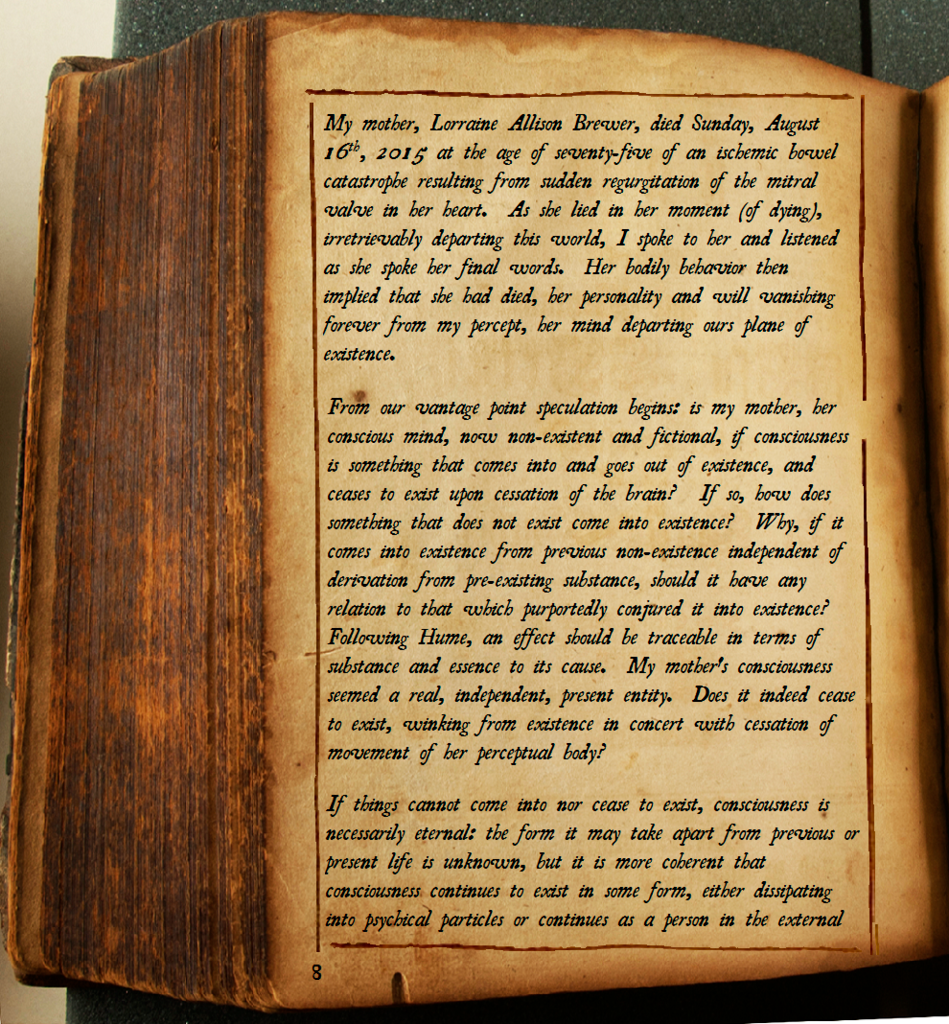 My mother, Lorraine Allison Brewer, died Sunday, August
16th, 2015 at the age of seventy-five of an ischemic bowel
catastrophe resulting from sudden regurgitation of the mitral
valve in her heart. As she lied in her moment (of dying),
irretrievably departing this world, I spoke to her and listened
as she spoke her final words. Her bodily behavior then
implied that she had died, her personality and will vanishing
forever from my percept, her mind departing ours plane of
existence.
From our vantage point speculation begins: is my mother, her
conscious mind, now non-existent and fictional, if consciousness
is something that comes into and goes out of existence, and
ceases to exist upon cessation of the brain? If so, how does
something that does not exist come into existence? Why, if it
comes into existence from previous non-existence independent of
derivation from pre-existing substance, should it have any
relation to that which purportedly conjured it into existence?
Following Hume, an effect should be traceable in terms of
substance and essence to its cause. My mother's consciousness
seemed a real, independent, present entity. Does it indeed cease
to exist, winking from existence in concert with cessation of
movement of her perceptual body?
If things cannot come into nor cease to exist, consciousness is
necessarily eternal: the form it may take apart from previous or
present life is unknown, but it is more coherent that
consciousness continues to exist in some form, either dissipating
into psychical particles or continues as a person in the external
8